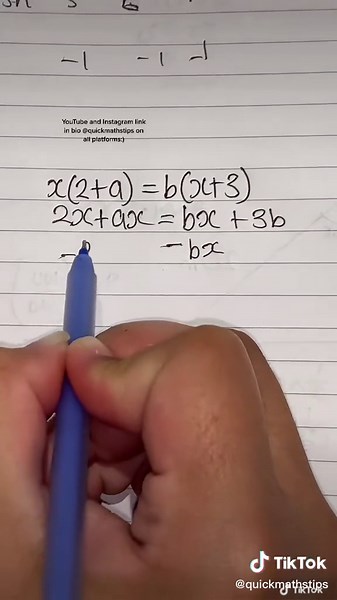 -1 -1 -1
YouTube and Instagram link
in bio @quickmathstips on
all platforms:)
x(2+a) = b(x+3)
2x+ax = bx + 3b
- b -bx
TikTok
@quickmathstips
TikTok